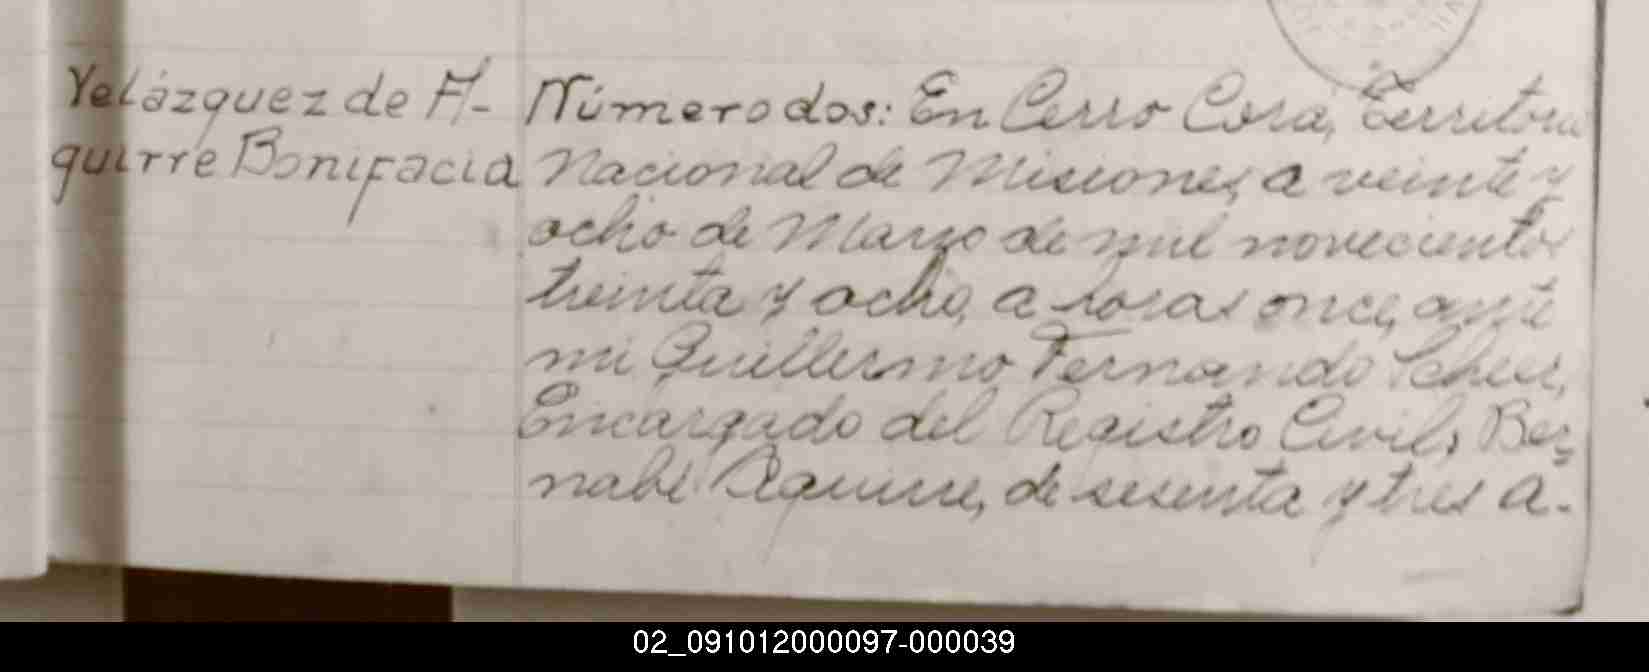 Velázquez de A-
guirre Bonifacia
Número dos: En Cerro Corá, Territorio
Nacional de Misiones, a veinte y
ocho de Marzo de mil novecientos
treinta y ocho, a horas once, ante
mi Guillermo Fernando Scheer,
Encargado del Registro Civil, Ber=
nabé Aguirre, de sesenta y tres a-
02_091012000097-000039